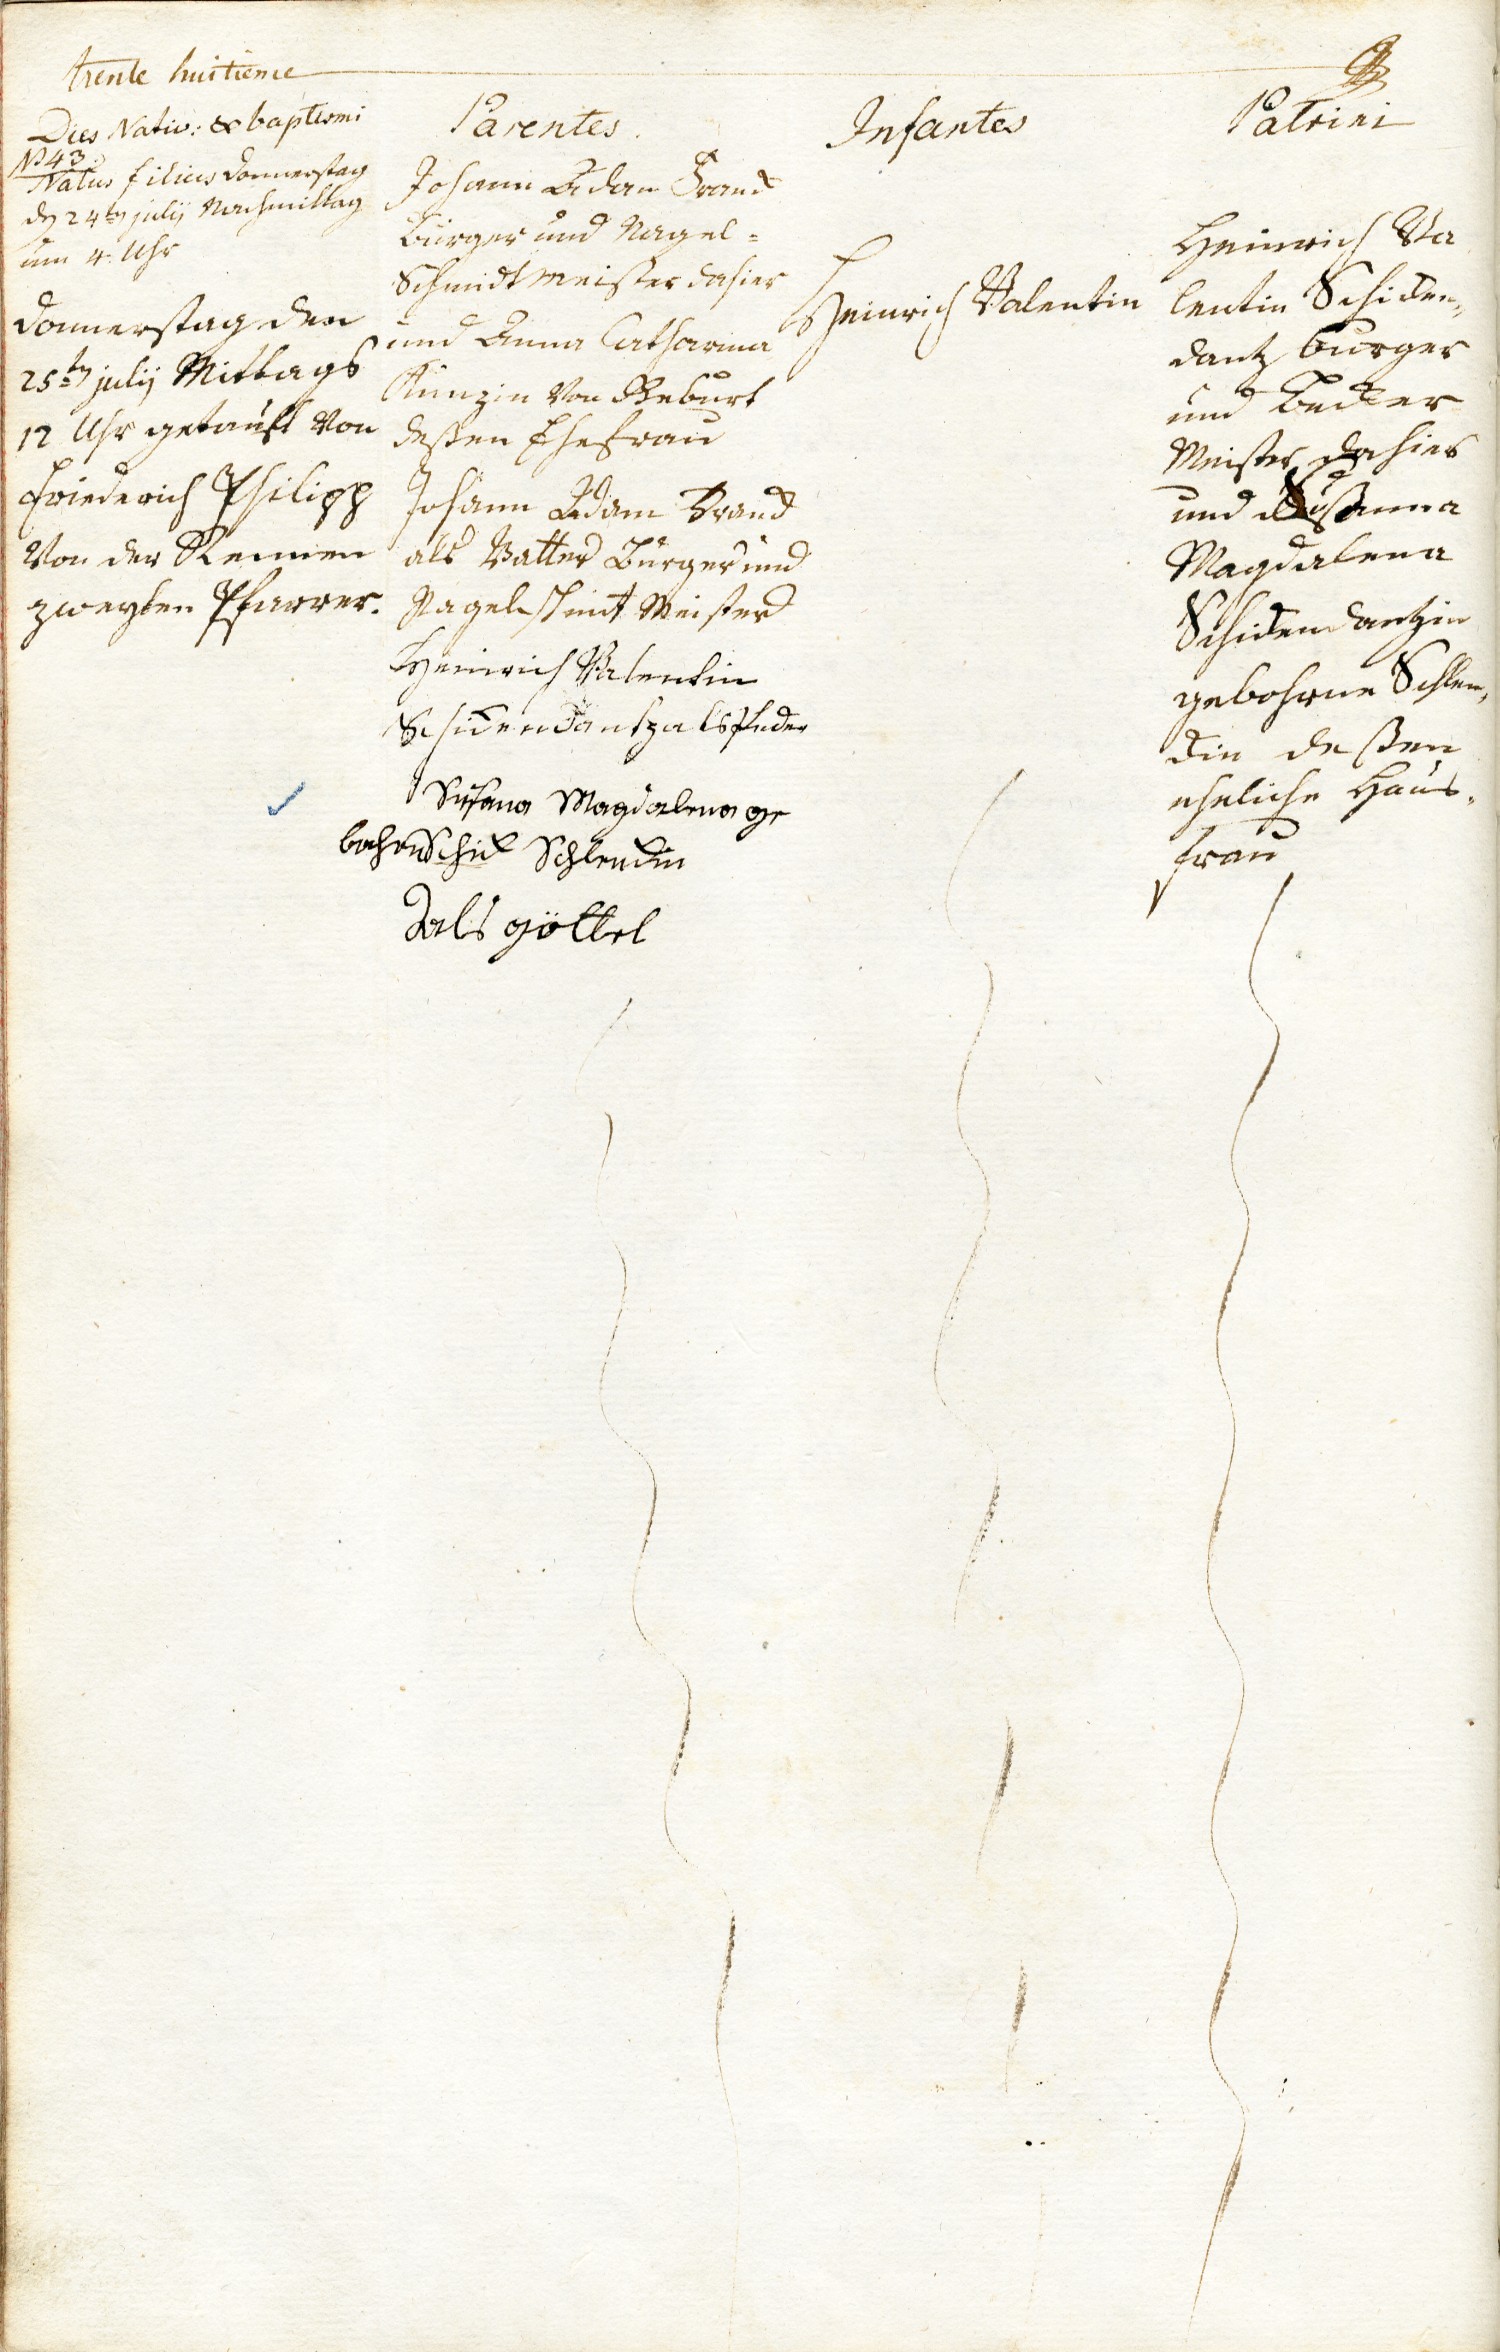 trente huitieme
Dies Nativ: & baptismi
No 43.
Natus filius Donnerstag
den 24ten julij Nachmittag
um 4. Uhr
Donnerstag den
25ten julij Mittags
12 Uhr getauft von
Friederich Philipp
Von der Rennen
zweyten Pfarrer.
Parentes.
Johann Adam Brand
Bürger und Nagel=
Schmidt Meister dahier
und Anna Catharina
Künzin von Geburt
deßen Ehefrau
Johann Adam Brand
als Vatter Bürger und
Nagelschmit Meister
Heinrich Valentin
Schidendantz als
Susana Magdalena ge
bohrn Schid Schlendin
als göttel
Infantes
Heinrich Valentin
Patrini
Heinrich Va
lentin Schiden,,
dantz burger
und Becker
Meister dahier
und Susanna
Magdalena
Schidendantzin
gebohrne Schlen,
din deßen
eheliche Haus,
frau